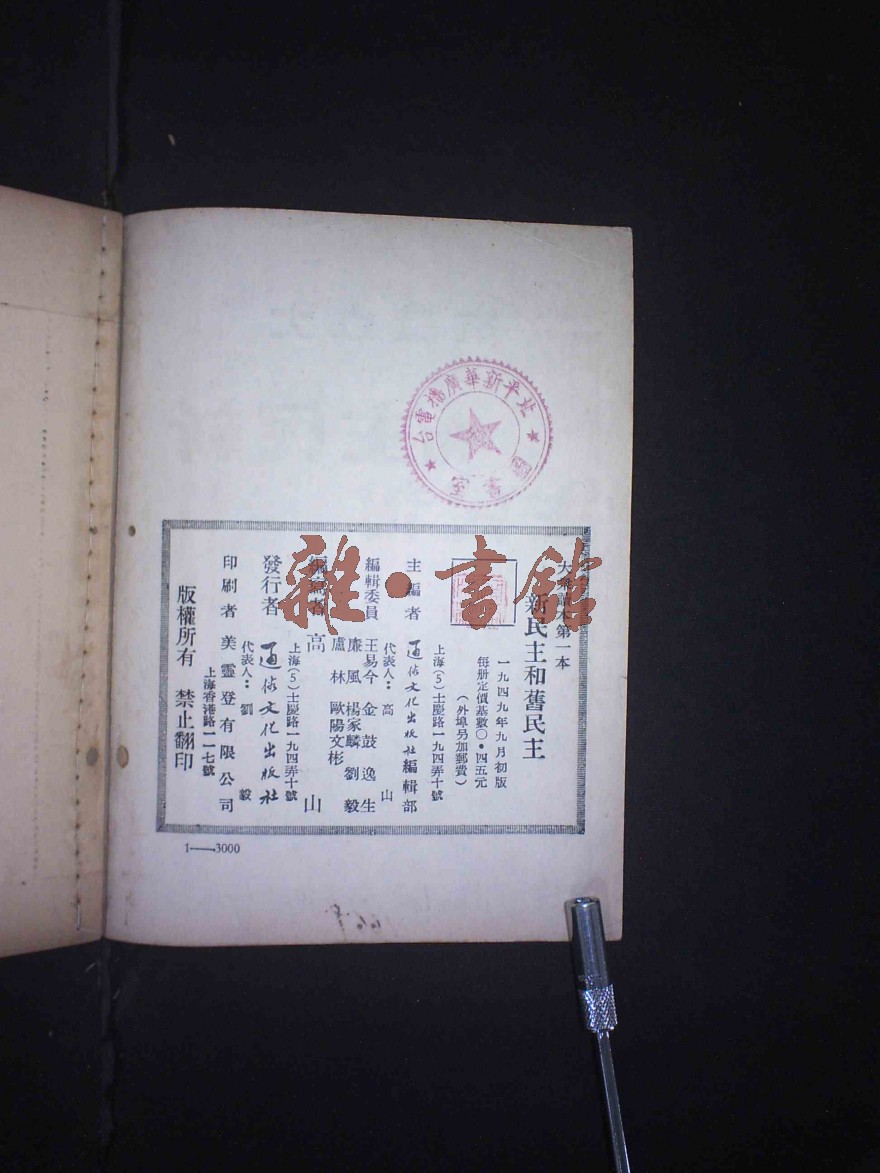 北平新華廣播電台
圖書室
大衆讀本第一本
新民主和舊民主
一九四九年九月初版
每册定價基數〇·四五元
(外埠另加郵費)
主編者 通俗文化出版社編輯部
上海(5)士慶路一九四弄十號
代表人：高山
編輯委員 王易今 金鼓 逸生
廉風 楊家麟 劉毅
盧林 歐陽文彬
編寫者 高山
發行者 通俗文化出版社
上海(5)士慶路一九四弄十號
代表人：劉毅
印刷者 美靈登有限公司
上海香港路一一七號
版權所有 禁止翻印
1——3000
雜·書館